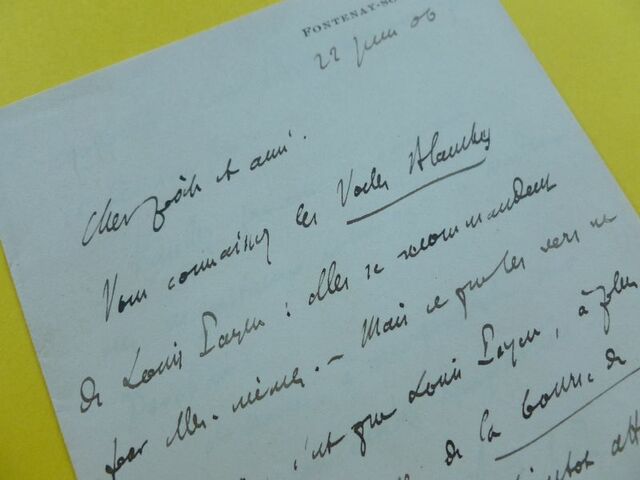 FONTENAY-SO
22 juin 06
Cher poète et ami.
Vous connaissez les Voiles Blanches
de Louis Payen : elles se recommandent
par elles-mêmes. – Mais ce que les vers ne
c'est que Louis Payen, à plus
de la bourse de